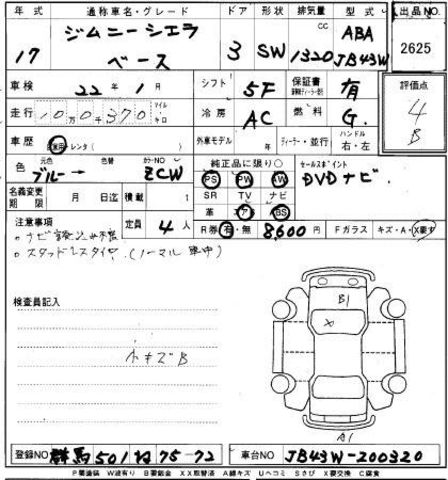 年式 通称車名・グレード ドア 形状 排気量 型式 出品NO.
17 ジムニーシエラ ベース 3 SW 1320 CC ABA JB43W 2625
車検 22年 1月 シフト 5F 保証書 有 評価点
走行 10万0千370 マイル キロ 冷房 AC 燃料 G. 4 B
車歴 自家用・レンタ( ) 外車モデル 年 ディーラー・並行 ハンドル 右・左
色 元色 ブルー→ 色替 カラーNO ZCW 純正品に限り○ セールスポイント
PS PW AW DVDナビ.
名義変更期限 月 日迄 積載 1 SR TV ナビ
革 エアB ABS
注意事項 定員 4人 R券 有・無 8,600円 Fガラス キズ・A・X要す
。スタッドレスタイヤ.(ノーマル 車中)
検査員記入
B1
小キズB
A1
登録NO 群馬501 ね 75-72 車台NO JB43W-200320
P要塗装 W波有り B要鈑金 XX取替済 A線キズ Uヘコミ Sさび X要交換 C腐食